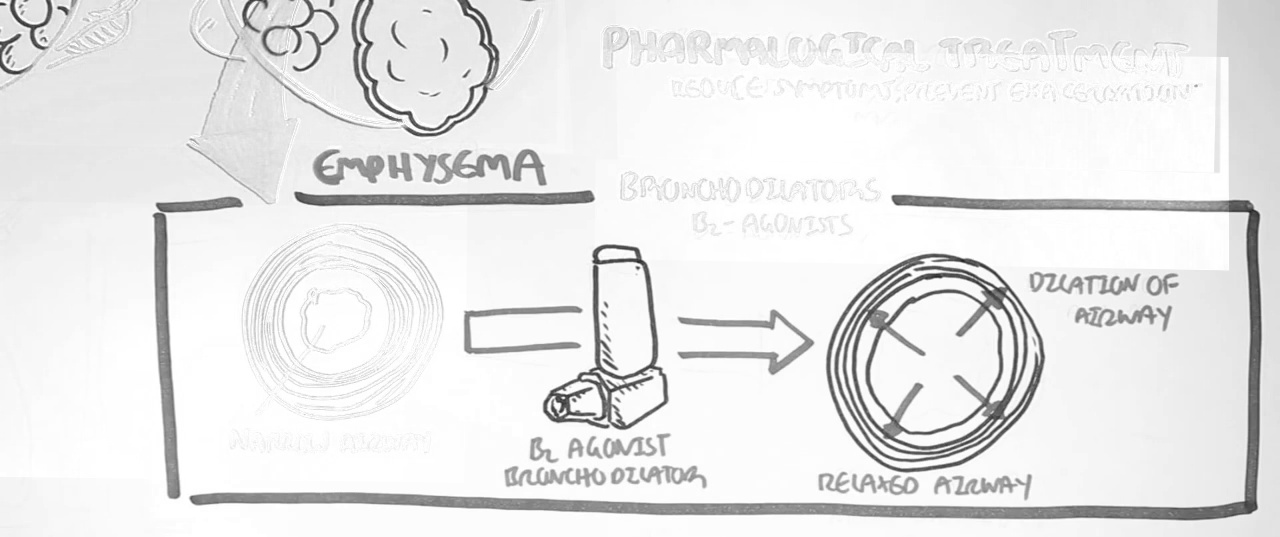 PHARMALOGICAL TREATMENT
REDUCE SYMPTOMS, PREVENT EXACERBATION
EMPHYSEMA
BRONCHODILATORS
B2-AGONISTS
DILATION OF
AIRWAY
AIRWAY
B2 AGONIST
BRONCHODILATOR
RELAXED AIRWAY